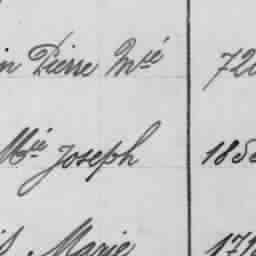 in Pierre Mié 72
Mié Joseph 185
Marie 171